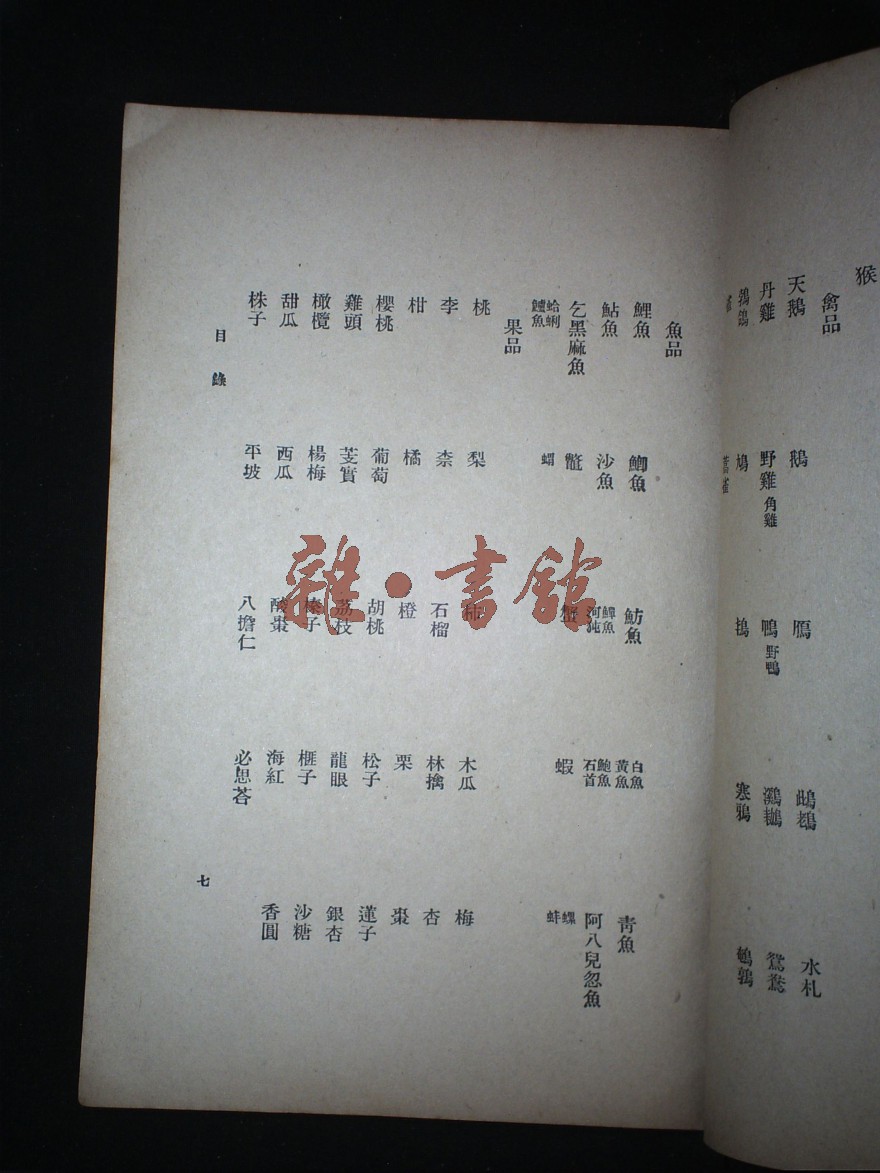 猴
禽品
天鵝 鵝 鴈 水札
丹雞 野雞 角雞 鴨 野鴨 鴛鴦
鵓鴿 鳩 鴇 寒鴉 鵪鶉
魚品
鯉魚 鯽魚 魴魚 白魚 黃魚 青魚
鮎魚 沙魚 鱓魚 河㹠 鮑魚 石首 阿八兒忽魚
乞黑麻魚 鼈 蟹 蝦 螺 蚌
蛤蜊 鱧魚 蝟
果品
桃 梨 柿 木瓜 梅
李 柰 石榴 林擒 杏
柑 橘 橙 栗 棗
櫻桃 葡萄 胡桃 松子 蓮子
雞頭 芰實 荔枝 龍眼 銀杏
橄欖 楊梅 榛子 榧子 沙糖
甜瓜 西瓜 酸棗 海紅 香圓
株子 平坡 八擔仁 必思荅
目錄
七
雜·書館